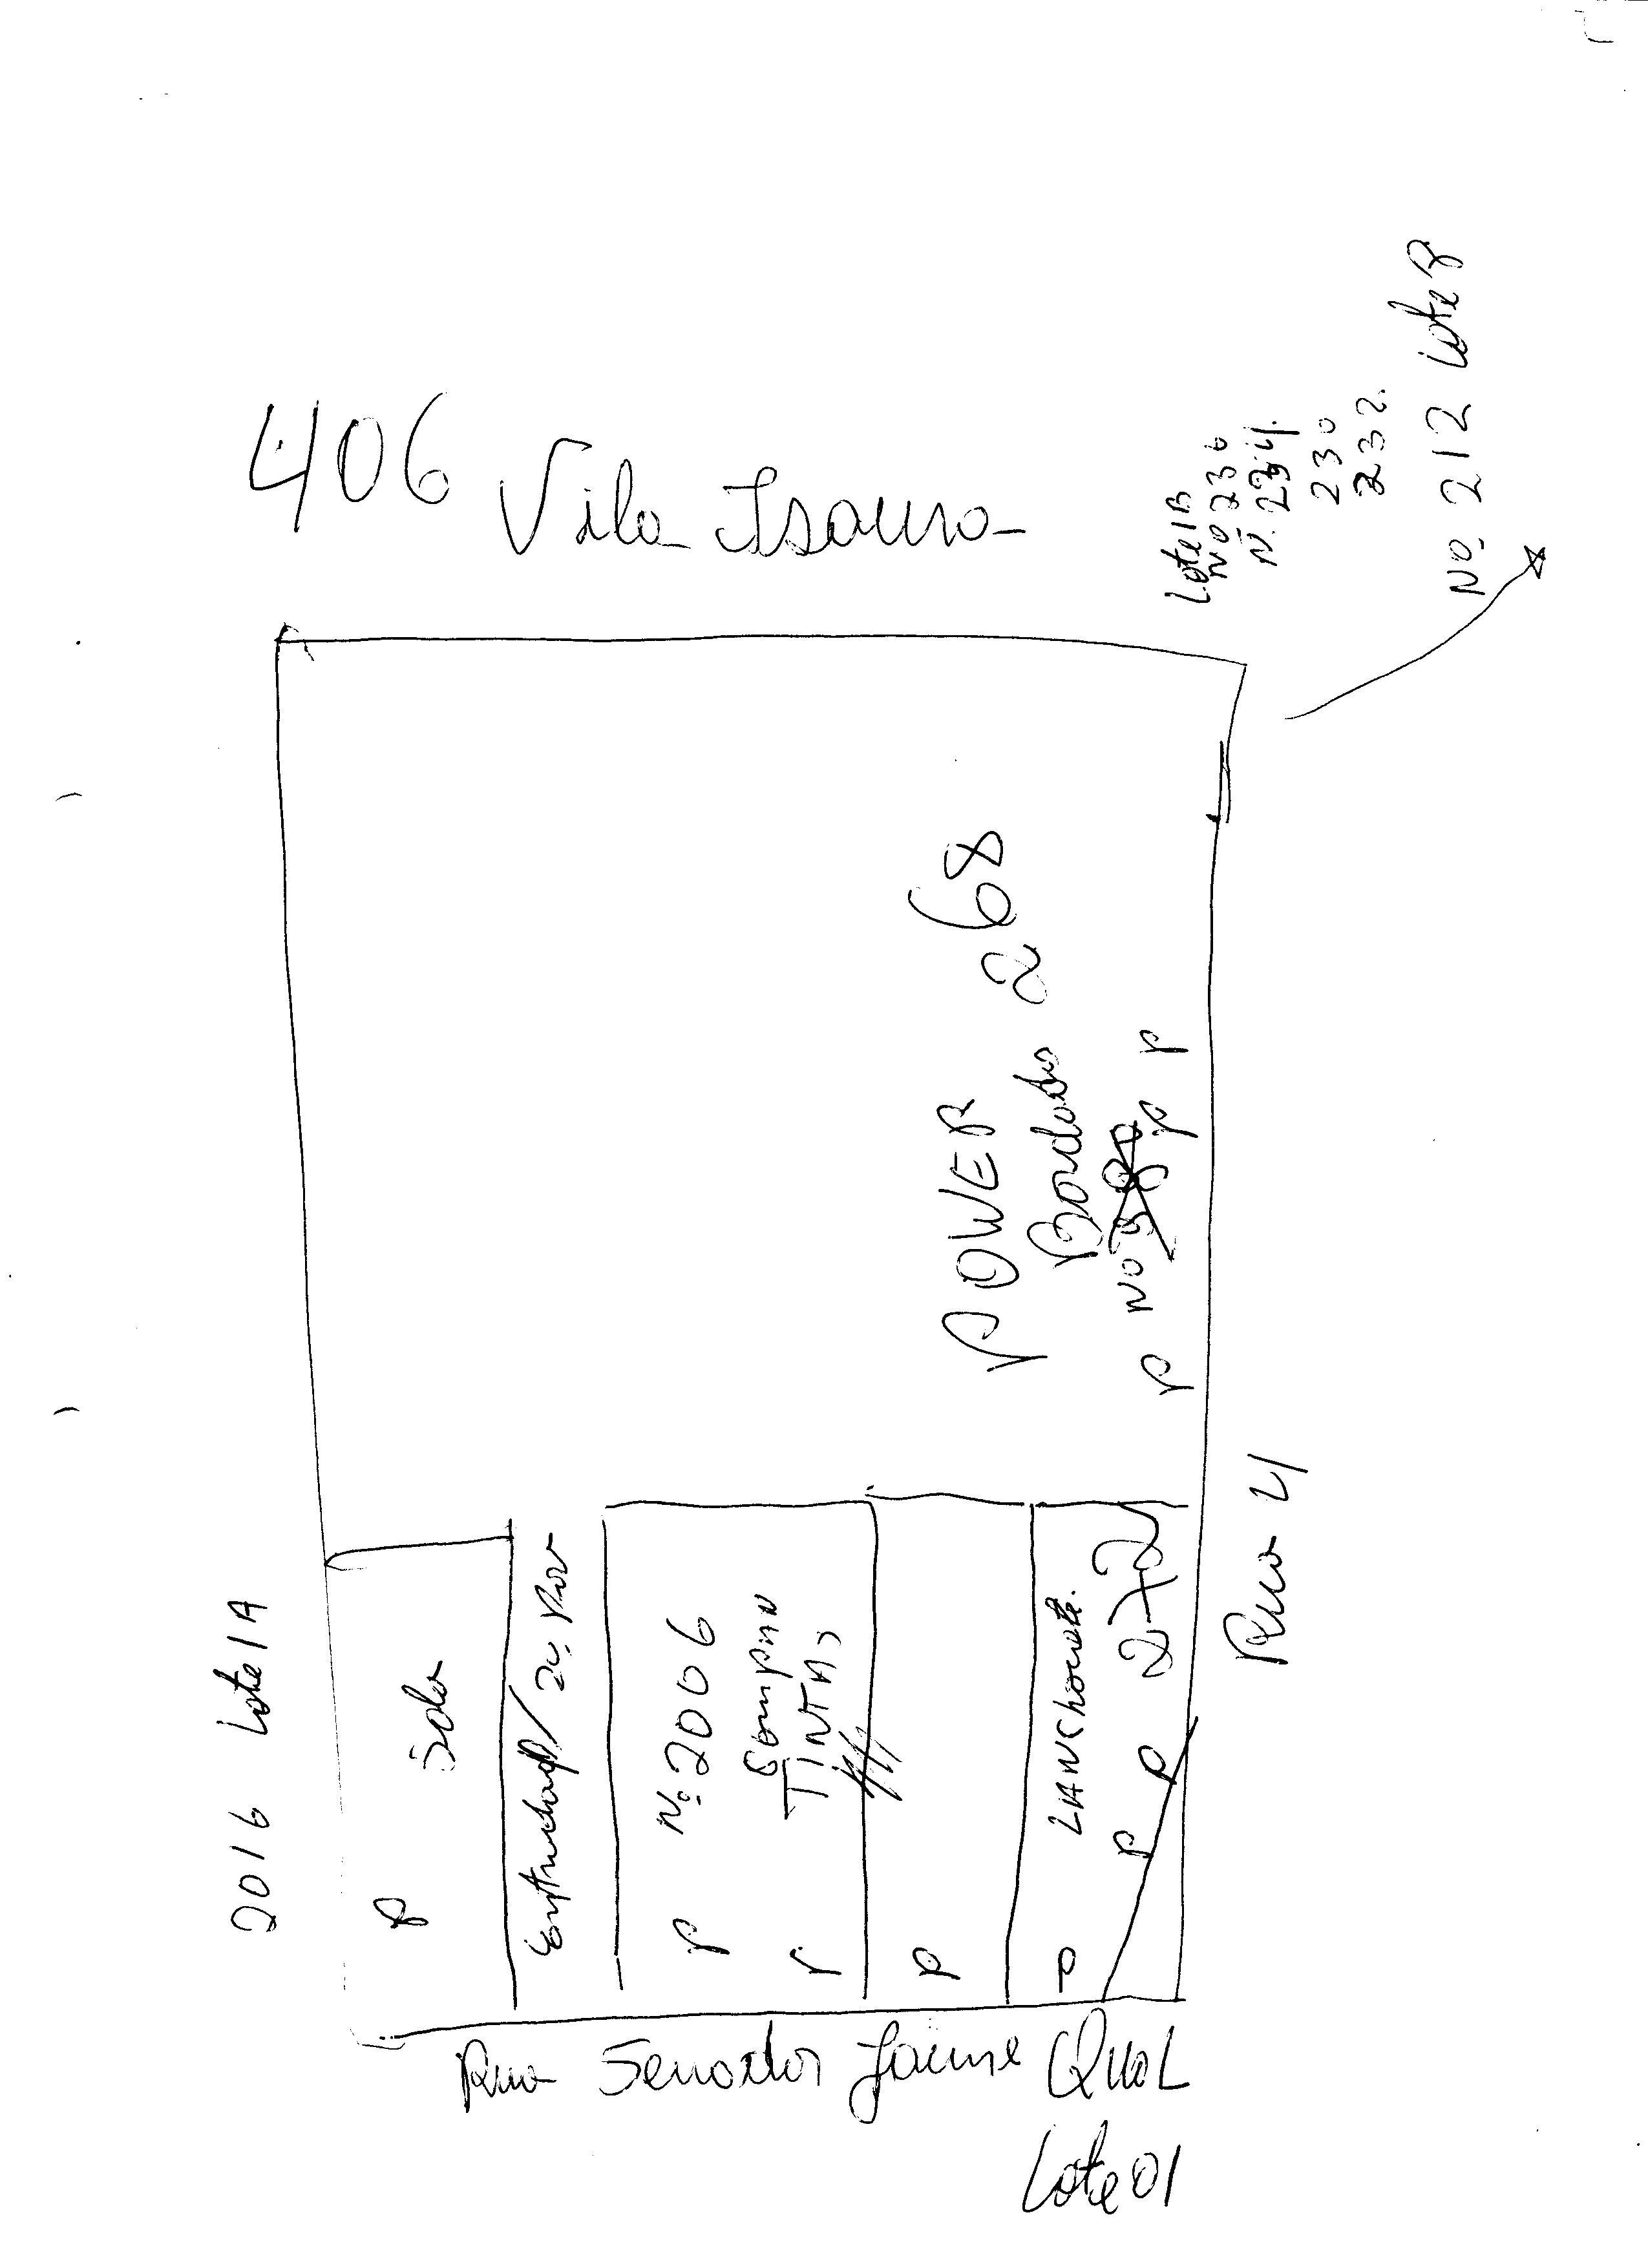 406
Vila Isaura
Lote 1B
No 236
N. 234
230
232.
No. 212 Lote 8
POWER
Bordados 268
No
P P P
2016 Lote 1A
Sala
P
Entrada p/ 2º Piso
Nº 2006
P
TINTAS
P
P
LANChonete.
P
P P 272
Rua 4
Rua Senador Jaime Qua L
Lote 01